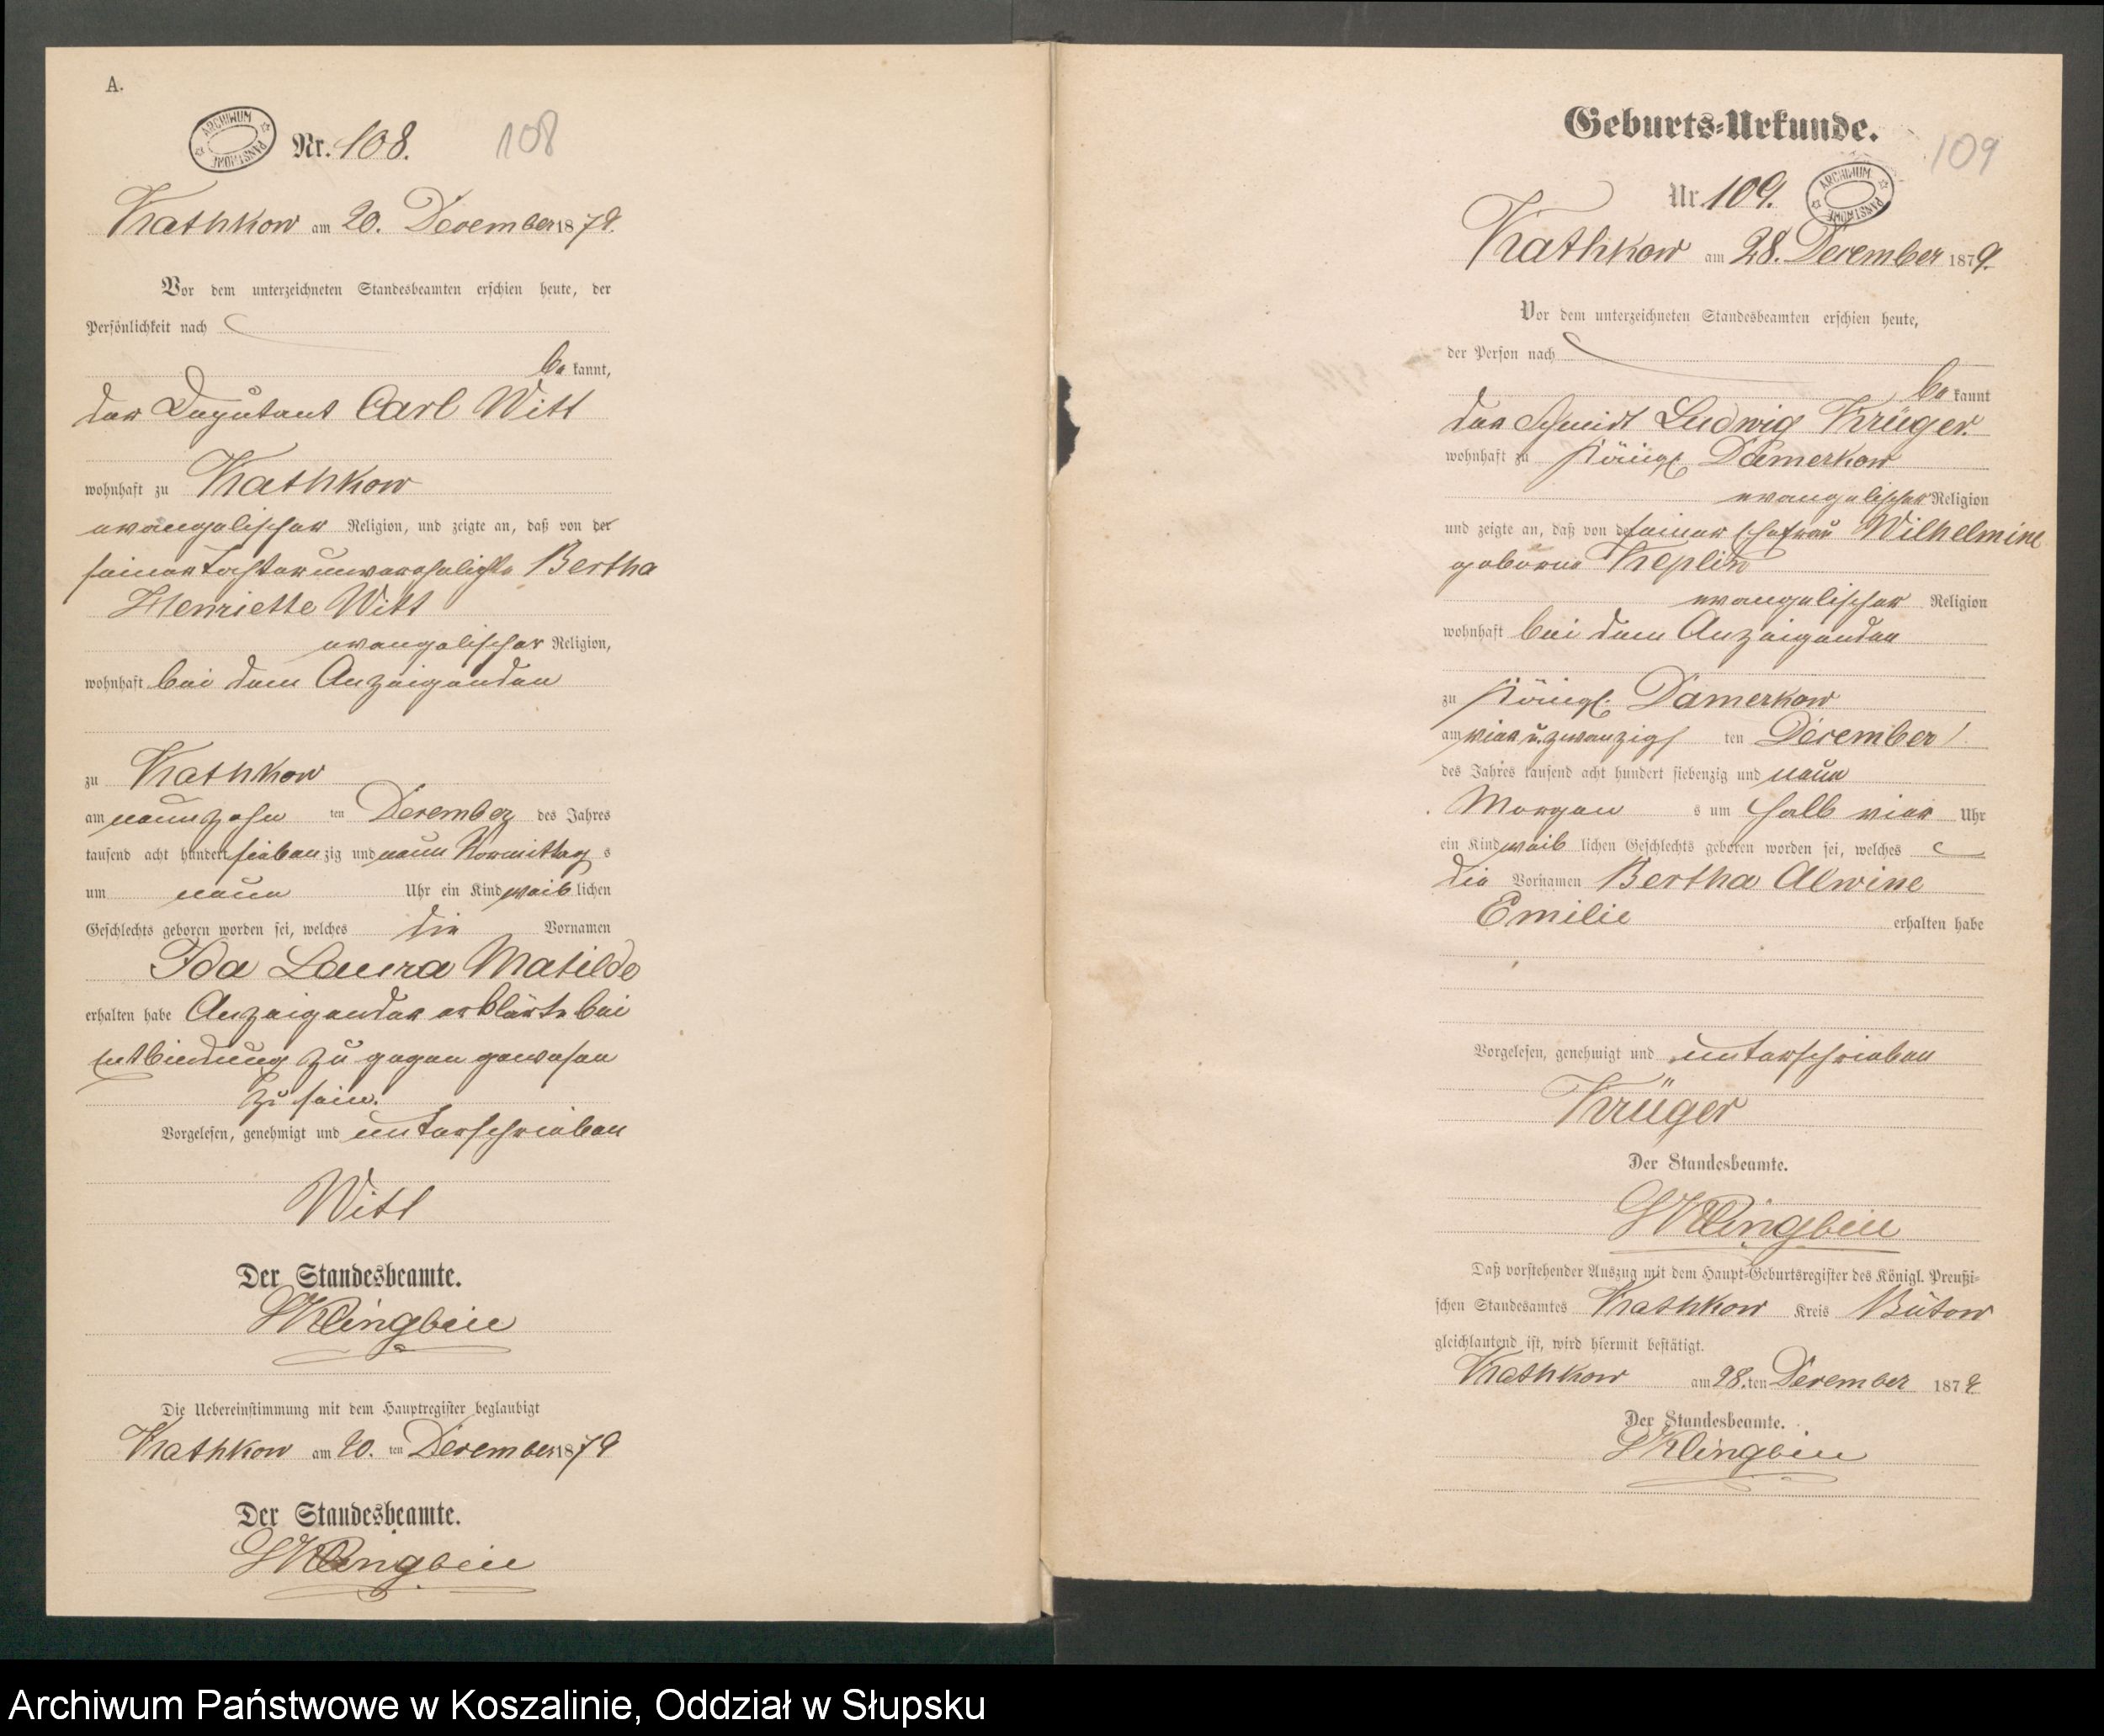 A.
ARCHIWUM PAŃSTWOWE
Nr. 108.
108
Kathkow am 20. December 1879.
Vor dem unterzeichneten Standesbeamten erschien heute, der
Persönlichkeit nach
be kannt,
der Deputant Carl Witt
wohnhaft zu Kathkow
evangelischer Religion, und zeigte an, daß von der
seiner Tochter unverehelichte Bertha
Henriette Witt
evangelischer Religion,
wohnhaft bei dem Anzeigenden
zu Kathkow
am neunzehn ten December des Jahres
tausend acht hundert sieben zig und neun Vormittag s
um neun Uhr ein Kind weib lichen
Geschlechts geboren worden sei, welches die Vornamen
Ida Laura Matilde
erhalten habe Anzeigender erklärte bei
Entbindung zu gegen gewesen
zu sein.
Vorgelesen, genehmigt und unterschrieben
Witt
Der Standesbeamte.
Klingbeil
Die Uebereinstimmung mit dem Hauptregister beglaubigt
Kathkow am 20. ten December 1879
Der Standesbeamte.
Klingbeil
Geburts-Urkunde.
109
Nr. 109.
ARCHIWUM PAŃSTWOWE
Kathkow am 28. December 1879.
Vor dem unterzeichneten Standesbeamten erschien heute,
der Person nach
be kannt
der Schmidt Ludwig Krüger
wohnhaft zu Königl. Damerkow
evangelischer Religion
und zeigte an, daß von der seiner Ehefrau Wilhelmine
geborne Keplin
evangelischer Religion
wohnhaft bei dem Anzeigenden
zu Königl. Damerkow
am vier u. zwanzigs ten December
des Jahres tausend acht hundert siebenzig und neun
Morgen s um halb vier Uhr
ein Kind weib lichen Geschlechts geboren worden sei, welches
die Vornamen Bertha Alwine
Emilie erhalten habe
Vorgelesen, genehmigt und unterschrieben
Krüger
Der Standesbeamte.
Klingbeil
Daß vorstehender Auszug mit dem Haupt-Geburtsregister des Königl. Preußi-
schen Standesamtes Kathkow Kreis Bütow
gleichlautend ist, wird hiermit bestätigt.
Kathkow am 28. ten December 1879
Der Standesbeamte.
Klingbeil
Archiwum Państwowe w Koszalinie, Oddział w Słupsku